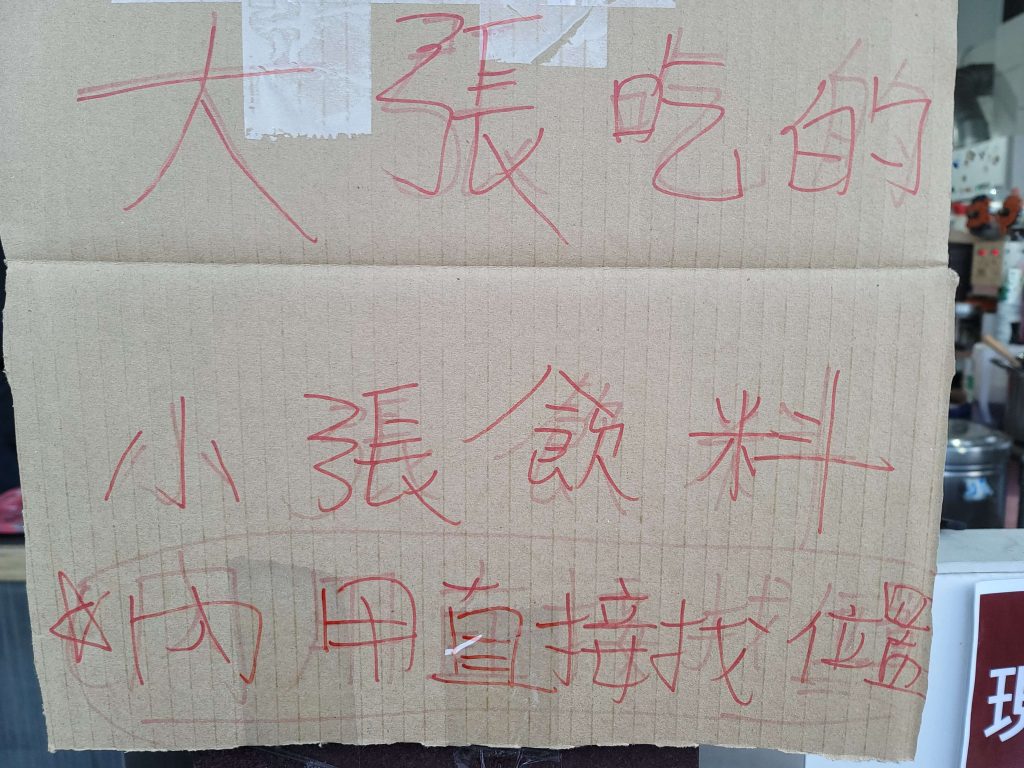 大張吃的
小張飲料
☆內用直接找位置
現